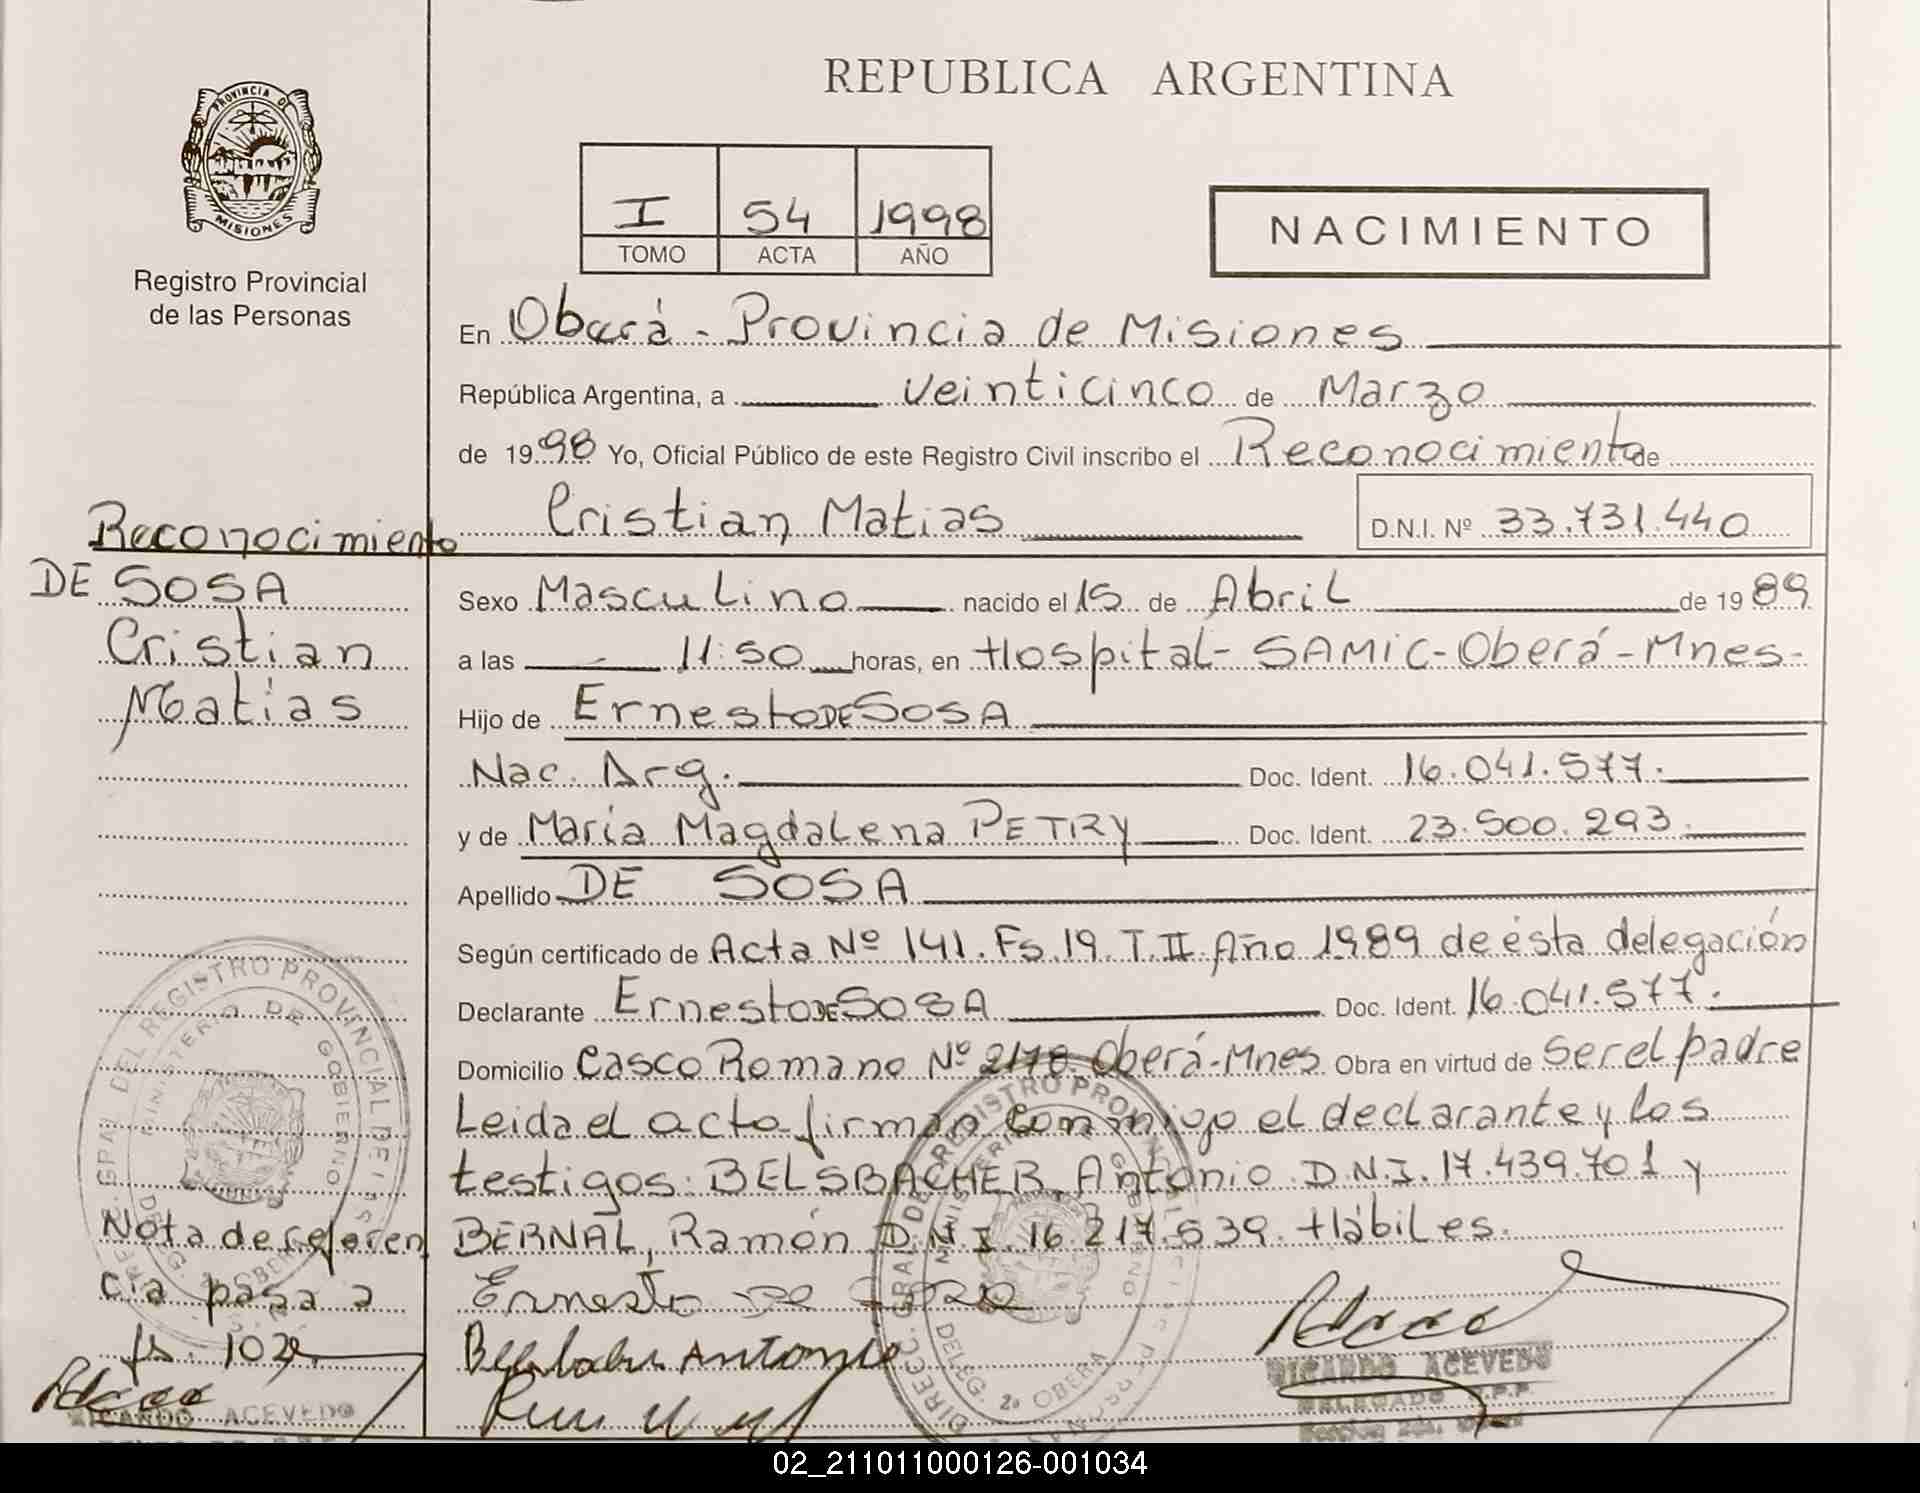 REPUBLICA ARGENTINA
PROVINCIA DE
MISIONES
Registro Provincial
de las Personas
I 54 1998
TOMO ACTA AÑO
NACIMIENTO
En Oberá - Provincia de Misiones
República Argentina, a veinticinco de Marzo
de 1998 Yo, Oficial Público de este Registro Civil inscribo el Reconocimiento de
Cristian Matias D.N.I. Nº 33.731.440
Reconocimiento
DE SOSA
Cristian
Matias
Sexo Masculino nacido el 15 de Abril de 1989
a las 11:50 horas, en Hospital - SAMIC - Oberá - Mnes-
Hijo de Ernesto DE SOSA
Nac. Arg. Doc. Ident. 16.041.577.
y de María Magdalena PETRY Doc. Ident. 23.500.293.
Apellido DE SOSA
Según certificado de Acta Nº 141. Fs. 19. T. II. Año 1989 de ésta delegación
Declarante Ernesto DE SOSA Doc. Ident. 16.041.577.
Domicilio Casco Romano Nº Oberá-Mnes. Obra en virtud de ser el padre
Leida el acta firman conmigo el declarante y los
testigos: BELSBACHER, Antonio D.N.I. 17.439.701 y
BERNAL, Ramón D.N.I. 16.217.539. Hábiles.
Nota de referen
cia pasa a
fs. 102
Ernesto de
Antonio
RICARDO ACEVEDO
DELEGADO R.P.P.
RICARDO ACEVEDO
DIRECC. GRAL. DEL REGISTRO PROVINCIAL DE LAS PERSONAS
MINISTERIO DE GOBIERNO
DELEG. 2a OBERA
02_211011000126-001034